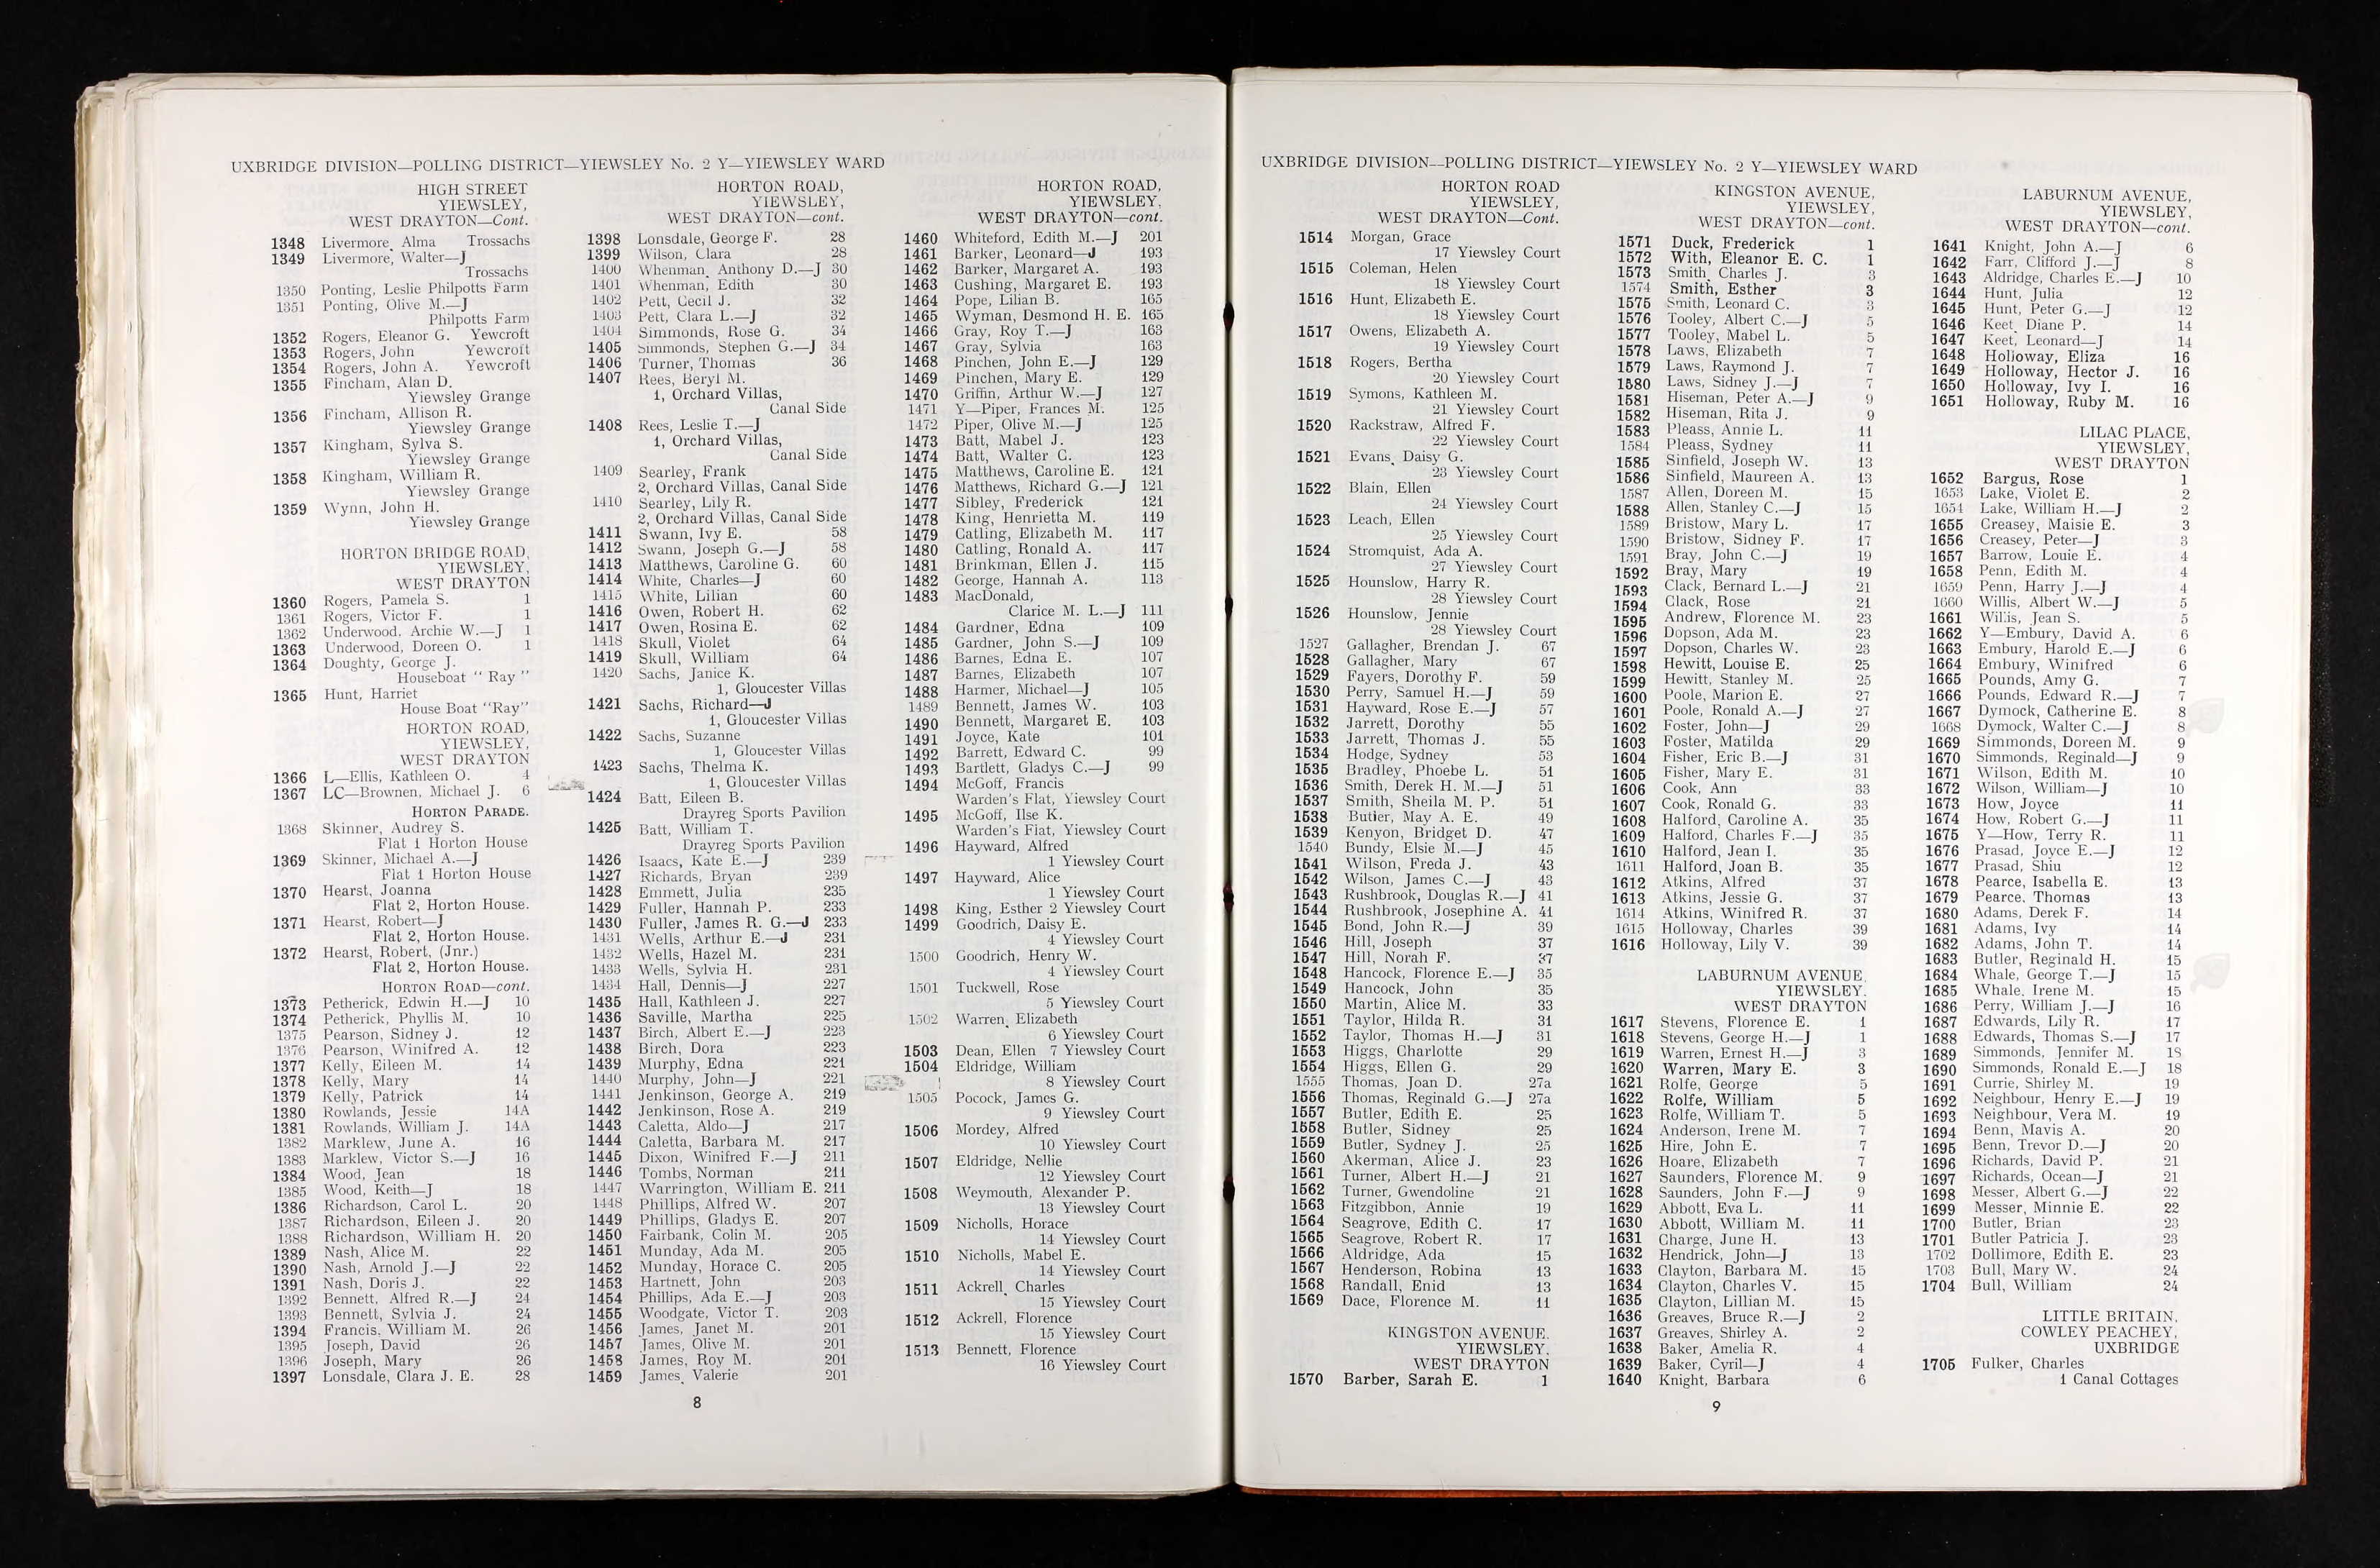 UXBRIDGE DIVISION—POLLING DISTRICT—YIEWSLEY No. 2 Y—YIEWSLEY WARD
HIGH STREET
YIEWSLEY,
WEST DRAYTON—Cont.
1348 Livermore, Alma Trossachs
1349 Livermore, Walter—J
Trossachs
1350 Ponting, Leslie Philpotts Farm
1351 Ponting, Olive M.—J
Philpotts Farm
1352 Rogers, Eleanor G. Yewcroft
1353 Rogers, John Yewcroft
1354 Rogers, John A. Yewcroft
1355 Fincham, Alan D.
Yiewsley Grange
1356 Fincham, Allison R.
Yiewsley Grange
1357 Kingham, Sylva S.
Yiewsley Grange
1358 Kingham, William R.
Yiewsley Grange
1359 Wynn, John H.
Yiewsley Grange
HORTON BRIDGE ROAD,
YIEWSLEY,
WEST DRAYTON
1360 Rogers, Pamela S. 1
1361 Rogers, Victor F. 1
1362 Underwood, Archie W.—J 1
1363 Underwood, Doreen O. 1
1364 Doughty, George J.
Houseboat “ Ray ”
1365 Hunt, Harriet
House Boat “Ray”
HORTON ROAD,
YIEWSLEY,
WEST DRAYTON
1366 L—Ellis, Kathleen O. 4
1367 LC—Brownen, Michael J. 6
HORTON PARADE.
1368 Skinner, Audrey S.
Flat 1 Horton House
1369 Skinner, Michael A.—J
Flat 1 Horton House
1370 Hearst, Joanna
Flat 2, Horton House.
1371 Hearst, Robert—J
Flat 2, Horton House.
1372 Hearst, Robert, (Jnr.)
Flat 2, Horton House.
HORTON ROAD—cont.
1373 Petherick, Edwin H.—J 10
1374 Petherick, Phyllis M. 10
1375 Pearson, Sidney J. 12
1376 Pearson, Winifred A. 12
1377 Kelly, Eileen M. 14
1378 Kelly, Mary 14
1379 Kelly, Patrick 14
1380 Rowlands, Jessie 14A
1381 Rowlands, William J. 14A
1382 Marklew, June A. 16
1383 Marklew, Victor S.—J 16
1384 Wood, Jean 18
1385 Wood, Keith—J 18
1386 Richardson, Carol L. 20
1387 Richardson, Eileen J. 20
1388 Richardson, William H. 20
1389 Nash, Alice M. 22
1390 Nash, Arnold J.—J 22
1391 Nash, Doris J. 22
1392 Bennett, Alfred R.—J 24
1393 Bennett, Sylvia J. 24
1394 Francis, William M. 26
1395 Joseph, David 26
1396 Joseph, Mary 26
1397 Lonsdale, Clara J. E. 28
HORTON ROAD,
YIEWSLEY,
WEST DRAYTON—cont.
1398 Lonsdale, George F. 28
1399 Wilson, Clara 28
1400 Whenman, Anthony D.—J 30
1401 Whenman, Edith 30
1402 Pett, Cecil J. 32
1403 Pett, Clara L.—J 32
1404 Simmonds, Rose G. 34
1405 Simmonds, Stephen G.—J 34
1406 Turner, Thomas 36
1407 Rees, Beryl M.
1, Orchard Villas,
Canal Side
1408 Rees, Leslie T.—J
1, Orchard Villas,
Canal Side
1409 Searley, Frank
2, Orchard Villas, Canal Side
1410 Searley, Lily R.
2, Orchard Villas, Canal Side
1411 Swann, Ivy E. 58
1412 Swann, Joseph G.—J 58
1413 Matthews, Caroline G. 60
1414 White, Charles—J 60
1415 White, Lilian 60
1416 Owen, Robert H. 62
1417 Owen, Rosina E. 62
1418 Skull, Violet 64
1419 Skull, William 64
1420 Sachs, Janice K.
1, Gloucester Villas
1421 Sachs, Richard—J
1, Gloucester Villas
1422 Sachs, Suzanne
1, Gloucester Villas
1423 Sachs, Thelma K.
1, Gloucester Villas
1424 Batt, Eileen B.
Drayreg Sports Pavilion
1425 Batt, William T.
Drayreg Sports Pavilion
1426 Isaacs, Kate E.—J 239
1427 Richards, Bryan 239
1428 Emmett, Julia 235
1429 Fuller, Hannah P. 233
1430 Fuller, James R. G.—J 233
1431 Wells, Arthur E.—J 231
1432 Wells, Hazel M. 231
1433 Wells, Sylvia H. 231
1434 Hall, Dennis—J 227
1435 Hall, Kathleen J. 227
1436 Saville, Martha 225
1437 Birch, Albert E.—J 223
1438 Birch, Dora 223
1439 Murphy, Edna 221
1440 Murphy, John—J 221
1441 Jenkinson, George A. 219
1442 Jenkinson, Rose A. 219
1443 Caletta, Aldo—J 217
1444 Caletta, Barbara M. 217
1445 Dixon, Winifred F.—J 211
1446 Tombs, Norman 211
1447 Warrington, William E. 211
1448 Phillips, Alfred W. 207
1449 Phillips, Gladys E. 207
1450 Fairbank, Colin M. 205
1451 Munday, Ada M. 205
1452 Munday, Horace C. 205
1453 Hartnett, John 203
1454 Phillips, Ada E.—J 203
1455 Woodgate, Victor T. 203
1456 James, Janet M. 201
1457 James, Olive M. 201
1458 James, Roy M. 201
1459 James, Valerie 201
HORTON ROAD,
YIEWSLEY,
WEST DRAYTON—cont.
1460 Whiteford, Edith M.—J 201
1461 Barker, Leonard—J 193
1462 Barker, Margaret A. 193
1463 Cushing, Margaret E. 193
1464 Pope, Lilian B. 165
1465 Wyman, Desmond H. E. 165
1466 Gray, Roy T.—J 163
1467 Gray, Sylvia 163
1468 Pinchen, John E.—J 129
1469 Pinchen, Mary E. 129
1470 Griffin, Arthur W.—J 127
1471 Y—Piper, Frances M. 125
1472 Piper, Olive M.—J 125
1473 Batt, Mabel J. 123
1474 Batt, Walter C. 123
1475 Matthews, Caroline E. 121
1476 Matthews, Richard G.—J 121
1477 Sibley, Frederick 121
1478 King, Henrietta M. 119
1479 Catling, Elizabeth M. 117
1480 Catling, Ronald A. 117
1481 Brinkman, Ellen J. 115
1482 George, Hannah A. 113
1483 MacDonald,
Clarice M. L.—J 111
1484 Gardner, Edna 109
1485 Gardner, John S.—J 109
1486 Barnes, Edna E. 107
1487 Barnes, Elizabeth 107
1488 Harmer, Michael—J 105
1489 Bennett, James W. 103
1490 Bennett, Margaret E. 103
1491 Joyce, Kate 101
1492 Barrett, Edward C. 99
1493 Bartlett, Gladys C.—J 99
1494 McGoff, Francis
Warden's Flat, Yiewsley Court
1495 McGoff, Ilse K.
Warden's Flat, Yiewsley Court
1496 Hayward, Alfred
1 Yiewsley Court
1497 Hayward, Alice
1 Yiewsley Court
1498 King, Esther 2 Yiewsley Court
1499 Goodrich, Daisy E.
4 Yiewsley Court
1500 Goodrich, Henry W.
4 Yiewsley Court
1501 Tuckwell, Rose
5 Yiewsley Court
1502 Warren, Elizabeth
6 Yiewsley Court
1503 Dean, Ellen 7 Yiewsley Court
1504 Eldridge, William
8 Yiewsley Court
1505 Pocock, James G.
9 Yiewsley Court
1506 Mordey, Alfred
10 Yiewsley Court
1507 Eldridge, Nellie
12 Yiewsley Court
1508 Weymouth, Alexander P.
13 Yiewsley Court
1509 Nicholls, Horace
14 Yiewsley Court
1510 Nicholls, Mabel E.
14 Yiewsley Court
1511 Ackrell, Charles
15 Yiewsley Court
1512 Ackrell, Florence
15 Yiewsley Court
1513 Bennett, Florence
16 Yiewsley Court
8
UXBRIDGE DIVISION—POLLING DISTRICT—YIEWSLEY No. 2 Y—YIEWSLEY WARD
HORTON ROAD
YIEWSLEY,
WEST DRAYTON—Cont.
1514 Morgan, Grace
17 Yiewsley Court
1515 Coleman, Helen
18 Yiewsley Court
1516 Hunt, Elizabeth E.
18 Yiewsley Court
1517 Owens, Elizabeth A.
19 Yiewsley Court
1518 Rogers, Bertha
20 Yiewsley Court
1519 Symons, Kathleen M.
21 Yiewsley Court
1520 Rackstraw, Alfred F.
22 Yiewsley Court
1521 Evans, Daisy G.
23 Yiewsley Court
1522 Blain, Ellen
24 Yiewsley Court
1523 Leach, Ellen
25 Yiewsley Court
1524 Stromquist, Ada A.
27 Yiewsley Court
1525 Hounslow, Harry R.
28 Yiewsley Court
1526 Hounslow, Jennie
28 Yiewsley Court
1527 Gallagher, Brendan J. 67
1528 Gallagher, Mary 67
1529 Fayers, Dorothy F. 59
1530 Perry, Samuel H.—J 59
1531 Hayward, Rose E.—J 57
1532 Jarrett, Dorothy 55
1533 Jarrett, Thomas J. 55
1534 Hodge, Sydney 53
1535 Bradley, Phoebe L. 51
1536 Smith, Derek H. M.—J 51
1537 Smith, Sheila M. P. 51
1538 Butler, May A. E. 49
1539 Kenyon, Bridget D. 47
1540 Bundy, Elsie M.—J 45
1541 Wilson, Freda J. 43
1542 Wilson, James C.—J 43
1543 Rushbrook, Douglas R.—J 41
1544 Rushbrook, Josephine A. 41
1545 Bond, John R.—J 39
1546 Hill, Joseph 37
1547 Hill, Norah F. 37
1548 Hancock, Florence E.—J 35
1549 Hancock, John 35
1550 Martin, Alice M. 33
1551 Taylor, Hilda R. 31
1552 Taylor, Thomas H.—J 31
1553 Higgs, Charlotte 29
1554 Higgs, Ellen G. 29
1555 Thomas, Joan D. 27a
1556 Thomas, Reginald G.—J 27a
1557 Butler, Edith E. 25
1558 Butler, Sidney 25
1559 Butler, Sydney J. 25
1560 Akerman, Alice J. 23
1561 Turner, Albert H.—J 21
1562 Turner, Gwendoline 21
1563 Fitzgibbon, Annie 19
1564 Seagrove, Edith C. 17
1565 Seagrove, Robert R. 17
1566 Aldridge, Ada 15
1567 Henderson, Robina 13
1568 Randall, Enid 13
1569 Dace, Florence M. 11
KINGSTON AVENUE,
YIEWSLEY,
WEST DRAYTON
1570 Barber, Sarah E. 1
KINGSTON AVENUE,
YIEWSLEY,
WEST DRAYTON—cont.
1571 Duck, Frederick 1
1572 With, Eleanor E. C. 1
1573 Smith, Charles J. 3
1574 Smith, Esther 3
1575 Smith, Leonard C. 3
1576 Tooley, Albert C.—J 5
1577 Tooley, Mabel L. 5
1578 Laws, Elizabeth 7
1579 Laws, Raymond J. 7
1580 Laws, Sidney J.—J 7
1581 Hiseman, Peter A.—J 9
1582 Hiseman, Rita J. 9
1583 Pleass, Annie L. 11
1584 Pleass, Sydney 11
1585 Sinfield, Joseph W. 13
1586 Sinfield, Maureen A. 13
1587 Allen, Doreen M. 15
1588 Allen, Stanley C.—J 15
1589 Bristow, Mary L. 17
1590 Bristow, Sidney F. 17
1591 Bray, John C.—J 19
1592 Bray, Mary 19
1593 Clack, Bernard L.—J 21
1594 Clack, Rose 21
1595 Andrew, Florence M. 23
1596 Dopson, Ada M. 23
1597 Dopson, Charles W. 23
1598 Hewitt, Louise E. 25
1599 Hewitt, Stanley M. 25
1600 Poole, Marion E. 27
1601 Poole, Ronald A.—J 27
1602 Foster, John—J 29
1603 Foster, Matilda 29
1604 Fisher, Eric B.—J 31
1605 Fisher, Mary E. 31
1606 Cook, Ann 33
1607 Cook, Ronald G. 33
1608 Halford, Caroline A. 35
1609 Halford, Charles F.—J 35
1610 Halford, Jean I. 35
1611 Halford, Joan B. 35
1612 Atkins, Alfred 37
1613 Atkins, Jessie G. 37
1614 Atkins, Winifred R. 37
1615 Holloway, Charles 39
1616 Holloway, Lily V. 39
LABURNUM AVENUE,
YIEWSLEY.
WEST DRAYTON
1617 Stevens, Florence E. 1
1618 Stevens, George H.—J 1
1619 Warren, Ernest H.—J 3
1620 Warren, Mary E. 3
1621 Rolfe, George 5
1622 Rolfe, William 5
1623 Rolfe, William T. 5
1624 Anderson, Irene M. 7
1625 Hire, John E. 7
1626 Hoare, Elizabeth 7
1627 Saunders, Florence M. 9
1628 Saunders, John F.—J 9
1629 Abbott, Eva L. 11
1630 Abbott, William M. 11
1631 Charge, June H. 13
1632 Hendrick, John—J 13
1633 Clayton, Barbara M. 15
1634 Clayton, Charles V. 15
1635 Clayton, Lillian M. 15
1636 Greaves, Bruce R.—J 2
1637 Greaves, Shirley A. 2
1638 Baker, Amelia R. 4
1639 Baker, Cyril—J 4
1640 Knight, Barbara 6
LABURNUM AVENUE,
YIEWSLEY,
WEST DRAYTON—cont.
1641 Knight, John A.—J 6
1642 Farr, Clifford J.—J 8
1643 Aldridge, Charles E.—J 10
1644 Hunt, Julia 12
1645 Hunt, Peter G.—J 12
1646 Keet, Diane P. 14
1647 Keet, Leonard—J 14
1648 Holloway, Eliza 16
1649 Holloway, Hector J. 16
1650 Holloway, Ivy I. 16
1651 Holloway, Ruby M. 16
LILAC PLACE,
YIEWSLEY,
WEST DRAYTON
1652 Bargus, Rose 1
1653 Lake, Violet E. 2
1654 Lake, William H.—J 2
1655 Creasey, Maisie E. 3
1656 Creasey, Peter—J 3
1657 Barrow, Louie E. 4
1658 Penn, Edith M. 4
1659 Penn, Harry J.—J 4
1660 Willis, Albert W.—J 5
1661 Willis, Jean S. 5
1662 Y—Embury, David A. 6
1663 Embury, Harold E.—J 6
1664 Embury, Winifred 6
1665 Pounds, Amy G. 7
1666 Pounds, Edward R.—J 7
1667 Dymock, Catherine E. 8
1668 Dymock, Walter C.—J 8
1669 Simmonds, Doreen M. 9
1670 Simmonds, Reginald—J 9
1671 Wilson, Edith M. 10
1672 Wilson, William—J 10
1673 How, Joyce 11
1674 How, Robert G.—J 11
1675 Y—How, Terry R. 11
1676 Prasad, Joyce E.—J 12
1677 Prasad, Shiu 12
1678 Pearce, Isabella E. 13
1679 Pearce, Thomas 13
1680 Adams, Derek F. 14
1681 Adams, Ivy 14
1682 Adams, John T. 14
1683 Butler, Reginald H. 15
1684 Whale, George T.—J 15
1685 Whale, Irene M. 15
1686 Perry, William J.—J 16
1687 Edwards, Lily R. 17
1688 Edwards, Thomas S.—J 17
1689 Simmonds, Jennifer M. 18
1690 Simmonds, Ronald E.—J 18
1691 Currie, Shirley M. 19
1692 Neighbour, Henry E.—J 19
1693 Neighbour, Vera M. 19
1694 Benn, Mavis A. 20
1695 Benn, Trevor D.—J 20
1696 Richards, David P. 21
1697 Richards, Ocean—J 21
1698 Messer, Albert G.—J 22
1699 Messer, Minnie E. 22
1700 Butler, Brian 23
1701 Butler Patricia J. 23
1702 Dollimore, Edith E. 23
1703 Bull, Mary W. 24
1704 Bull, William 24
LITTLE BRITAIN,
COWLEY PEACHEY,
UXBRIDGE
1705 Fulker, Charles
1 Canal Cottages
9